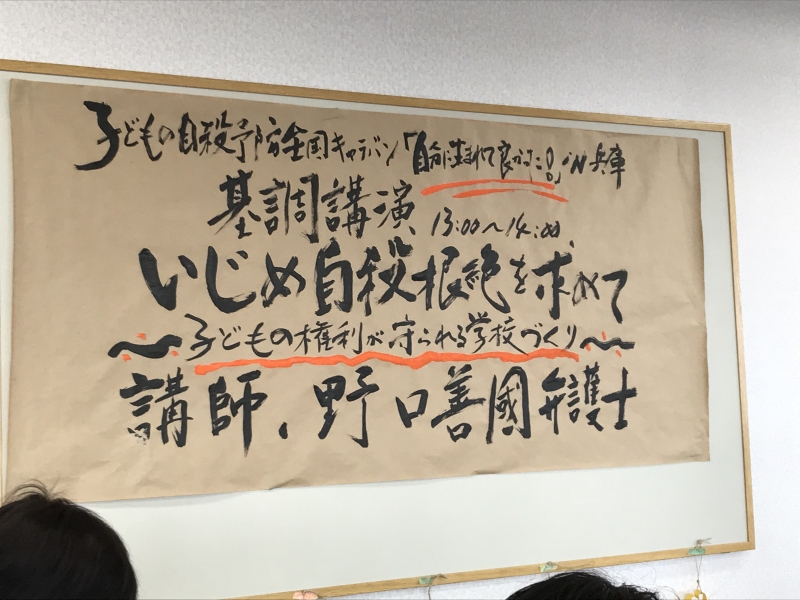 子どもの自殺予防全国キャラバン「自分に生まれて良かった!」IN兵庫
基調講演 13:00～14:00
いじめ自殺根絶を求めて
～子どもの権利が守られる学校づくり～
講師、野口善國弁護士